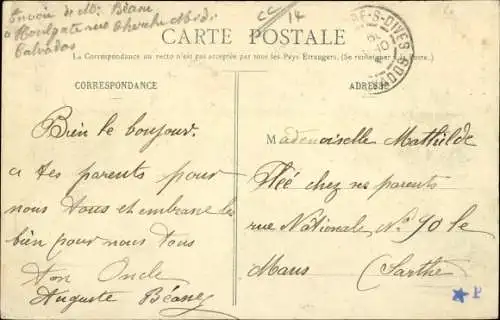 Envoie de Mr Béane
a Houlgate rue
Calvados
CC/14
CARTE POSTALE
La Correspondance au recto n'est pas acceptée par tous les Pays Etrangers. (Se renseigner à la Poste.)
CORRESPONDANCE
ADRESSE
S-DIVES
Bien le bonjour.
a tes parents pour
nous tous et embrasse les
bien pour nous tous
Ton Oncle
Auguste Béane
Mademoiselle Mathilde
Fléé chez ses parents
rue Nationale No 90 le
Mans (Sarthe